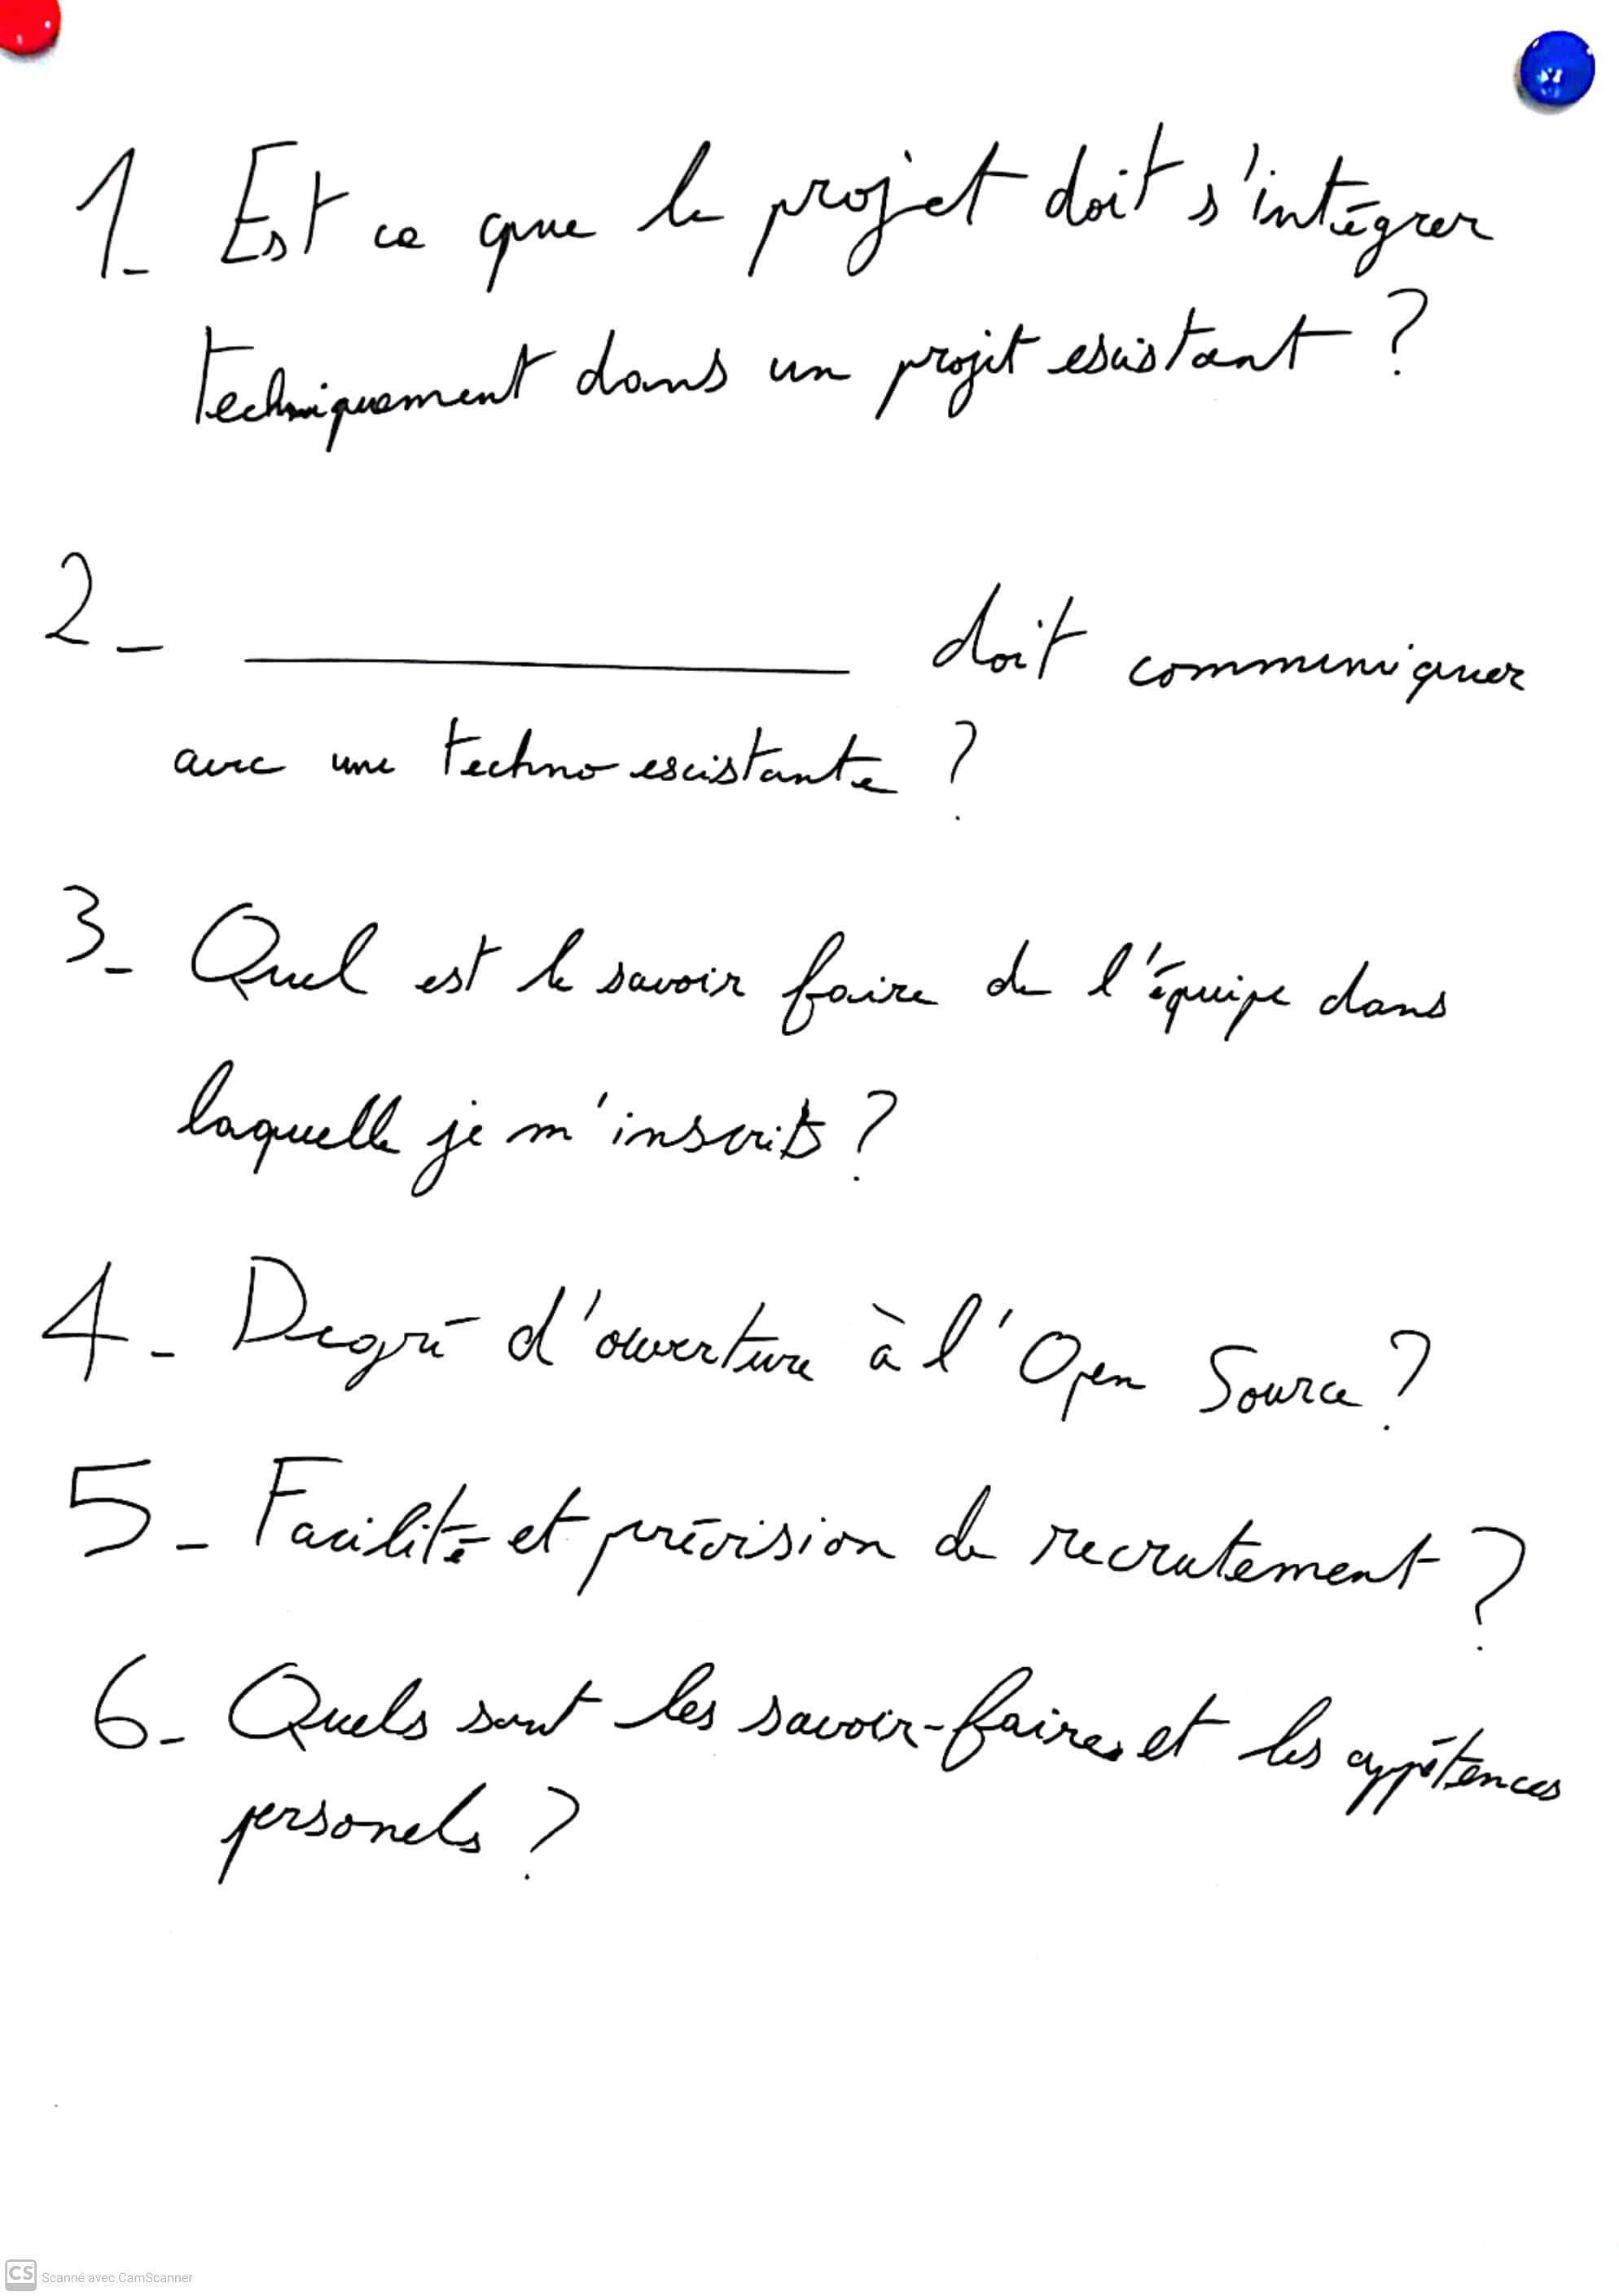 1_ Est ce que le projet doit s'intégrer
techniquement dans un projet existant ?
2_ ____________ doit communiquer
avec une techno existante ?
3_ Quel est le savoir faire de l'équipe dans
laquelle je m'inscris ?
4_ Degré d'ouverture à l'Open Source ?
5_ Facilité et prévision de recrutement ?
6_ Quels sont les savoir-faires et les appétences
personels ?
CS Scanné avec CamScanner